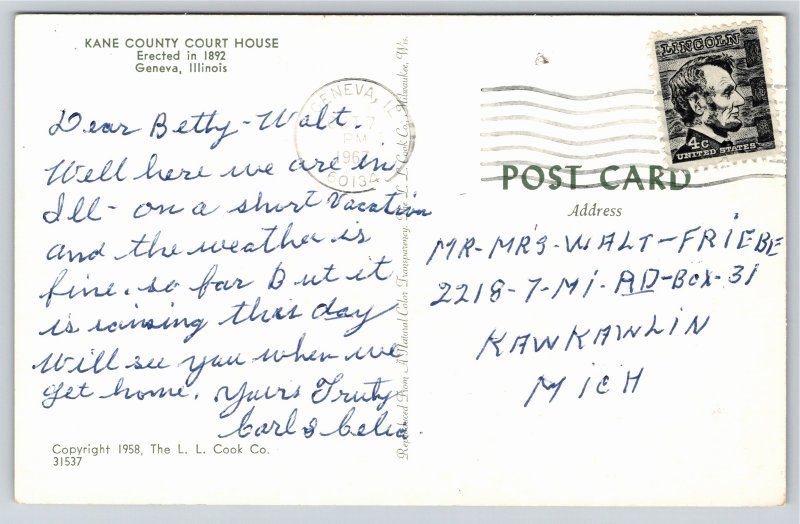 KANE COUNTY COURT HOUSE
Erected in 1892
Geneva, Illinois
Dear Betty-Walt.
Well here we are in
Ill- on a short Vacation
and the weather is
fine. so far But it
is raining this day
Will see you when we
get home. Yours Truly
Carl & Celia.
Copyright 1958, The L. L. Cook Co.
31537
Reproduced From A Natural Color Transparency, The L. L. Cook Co., Milwaukee, Wis.
GENEVA, IL
PM
1967
60134
LINCOLN
4c
UNITED STATES
POST CARD
Address
MR-MRS-WALT-FRIEBE
2218-7-MI-RD-BOX-31
KAWKAWLIN
MICH